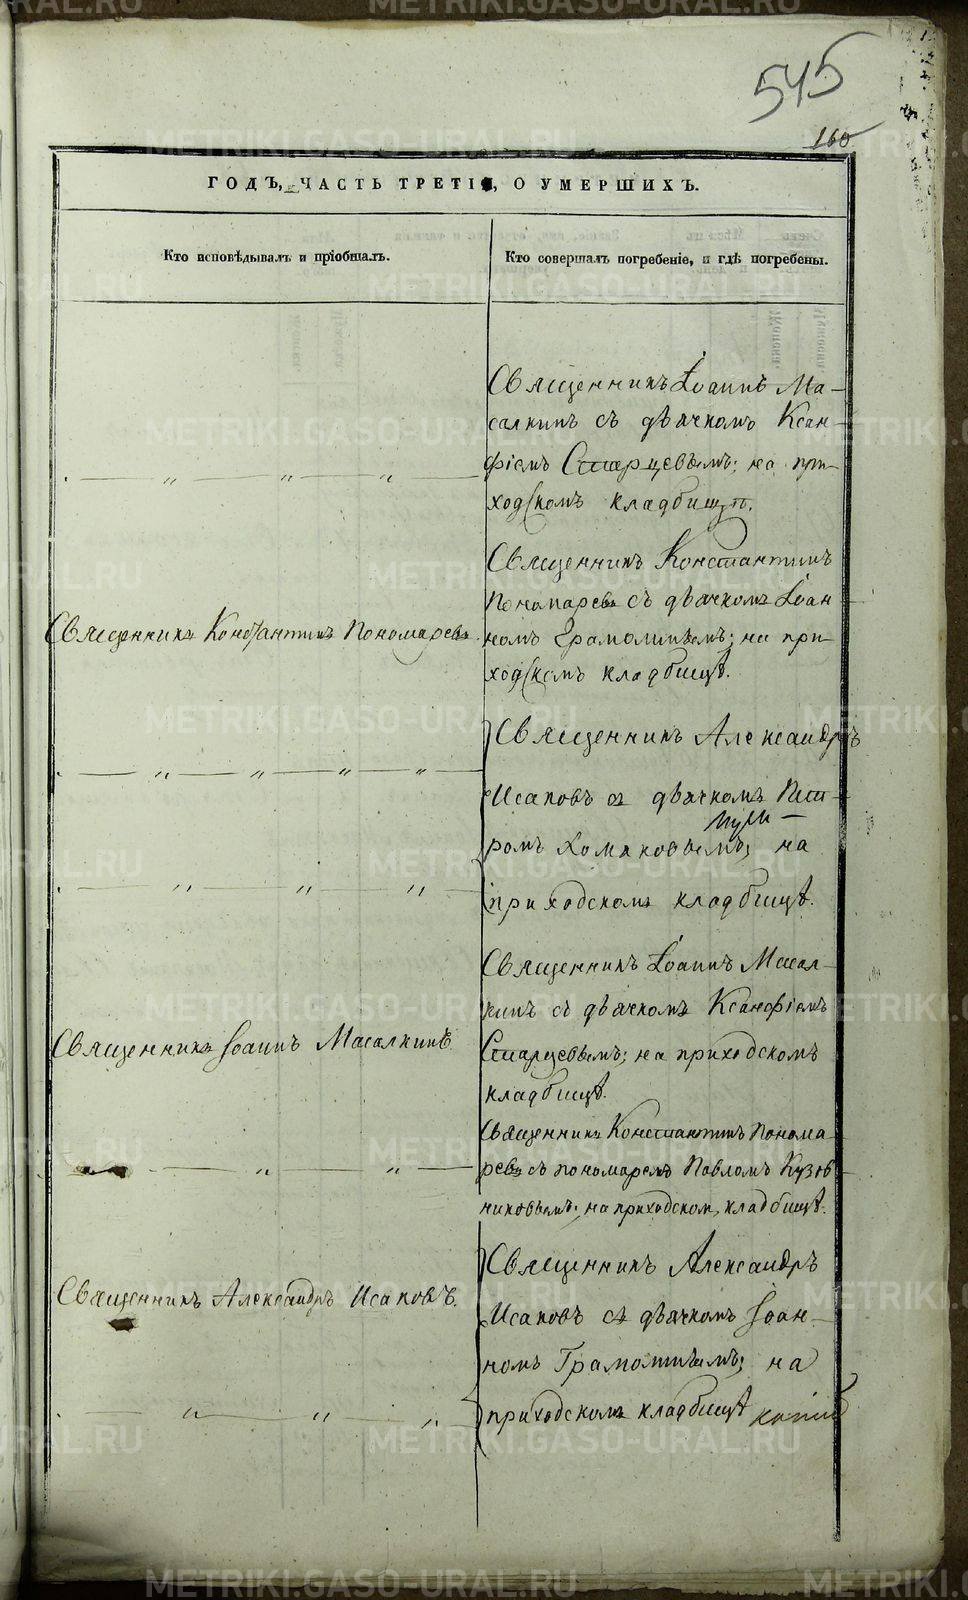 545
160
ГОДЪ, ЧАСТЬ ТРЕТІЯ, О УМЕРШИХЪ.
Кто исповѣдывалъ и пріобщалъ.
Кто совершалъ погребеніе, и гдѣ погребены.
Священникъ Іоаннъ Ма-
салкинъ съ дьячкомъ Ксан-
фіемъ Старцевымъ; на при-
ходскомъ кладбищѣ.
Священникъ Константинъ Пономаревъ
Священникъ Константинъ
Пономаревъ съ дьячкомъ Іоан
номъ Грамолинымъ; на при-
ходскомъ кладбищѣ.
Священникъ Александръ
Исаковъ съ дьячкомъ Пет-
ромъ Хомяковымъ; на
приходскомъ кладбищѣ.
Священникъ Іоаннъ Масалкинъ
Священникъ Іоаннъ Масал-
кинъ съ дьячкомъ Ксанфіемъ
Старцевымъ; на приходскомъ
кладбищѣ.
Священникъ Константинъ Понома-
ревъ съ пономаремъ Павломъ Кузов-
никовымъ; на приходском кладбищѣ.
Священникъ Александръ Исаковъ.
Священникъ Александръ
Исаковъ съ дьячкомъ Іоан-
номъ ; на
приходскомъ кладбищѣ
METRIKI.GASO-URAL.RU